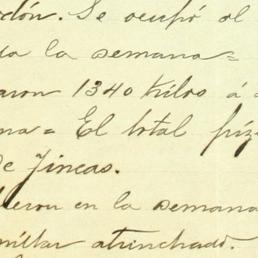 dón. Se ocupó el
la semana =
aron 1340 kilos á
na = El total
de fincas.
ieron en la semana
millar atrinchado.